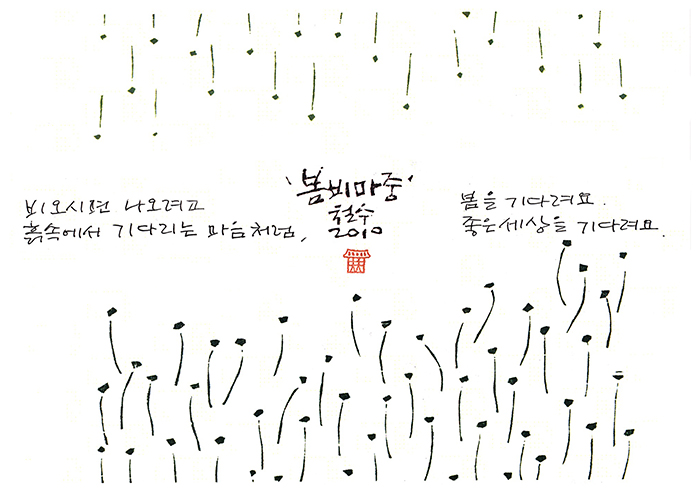 '봄비마중'
철수
2010
비오시면 나오려고
흙속에서 기다리는 마음처럼,
봄을 기다려요.
좋은세상을 기다려요.